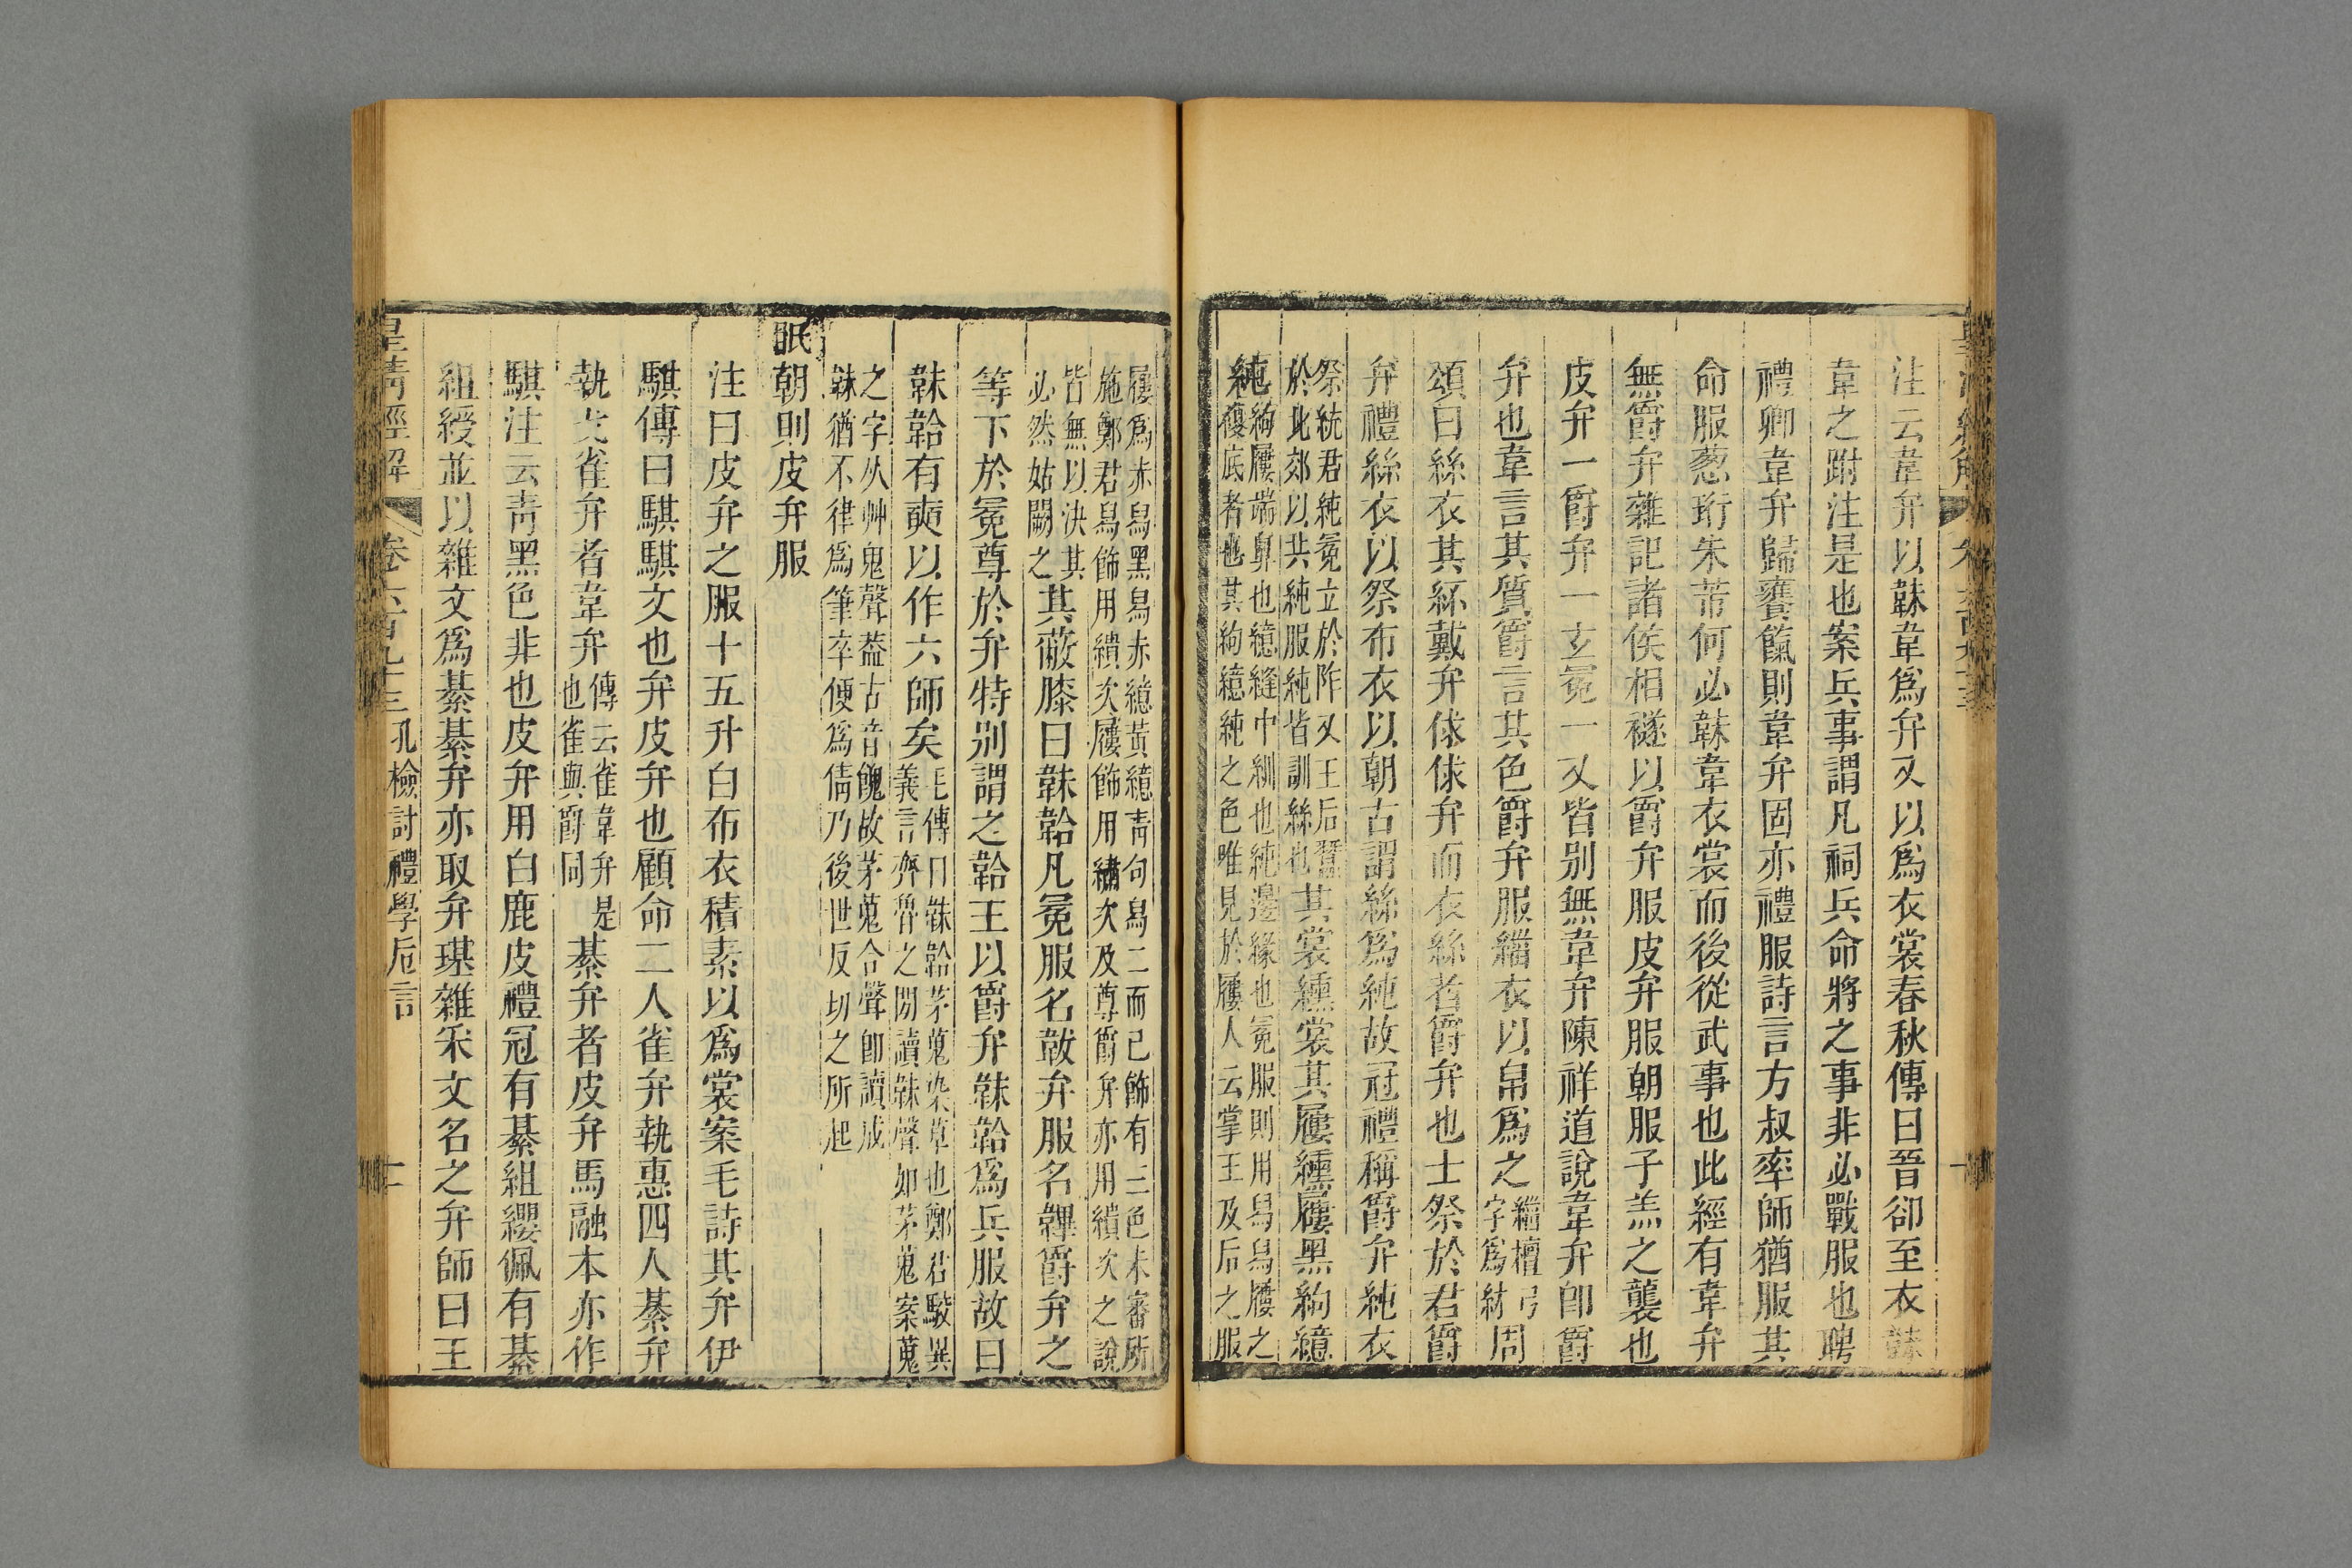 注云韋弁以韎韋爲弁又以爲衣裳春秋傳曰晉郤至衣韎
韋之跗注是也案兵事謂凡祠兵命將之事非必戰服也聘
禮卿韋弁歸饔餼則韋弁固亦禮服詩言方叔率師猶服其
命服葱珩朱芾何必韎韋衣裳而後從武事也此經有韋弁
無爵弁雜記諸侯相襚以爵弁服皮弁服朝服子羔之襲也
皮弁一爵弁一玄冕一又皆别無韋弁陳祥道說韋弁卽爵
弁也韋言其質爵言其色爵弁服緇衣以帛爲之緇檀弓字爲紂周
頌曰絲衣其紑戴弁俅俅弁而衣絲者爵弁也士祭於君爵
弁禮絲衣以祭布衣以朝古謂絲爲純故冠禮稱爵弁純衣
祭統君純冕立於阼又王后蠶於北郊以共純服純皆訓絲也其裳纁裳其屨纁屨黑絇繶
純絇屨端鼻也繶縫中紃也純邊緣也冕服則用舄舄屨之複底者也其絇繶純之色唯見於屨人云掌王及后之服
屨爲赤舄黑舄赤繶黃繶靑句舄二而已飾有三色未審所施鄭君舄飾用繢次屨飾用繡次及尊爵弁亦用繢次之說
皆無以決其必然姑闕之其蔽膝曰韎韐凡冕服名韍弁服名韠爵弁之
等下於冕尊於弁特别謂之韐王以爵弁韎韐爲兵服故曰
韎韐有奭以作六師矣毛傳曰韎韐茅蒐染草也鄭君駮異義言齊魯之閒讀韎聲如茅蒐案蒐
之字从艸鬼聲葢古音餽故茅蒐合聲卽讀成韎猶不律爲筆卒便爲倩乃後世反切之所起
眂朝則皮弁服
注曰皮弁之服十五升白布衣積素以爲裳案毛詩其弁伊
騏傳曰騏騏文也弁皮弁也顧命二人雀弁執惠四人綦弁
執戈雀弁者韋弁傳云雀韋弁是也雀與爵同綦弁者皮弁馬融本亦作
騏注云靑黑色非也皮弁用白鹿皮禮冠有綦組纓佩有綦
組綬並以雜文爲綦綦弁亦取弁璂雜采文名之弁師曰王
皇清經解 卷六百九十三 孔檢討禮學卮言 十一